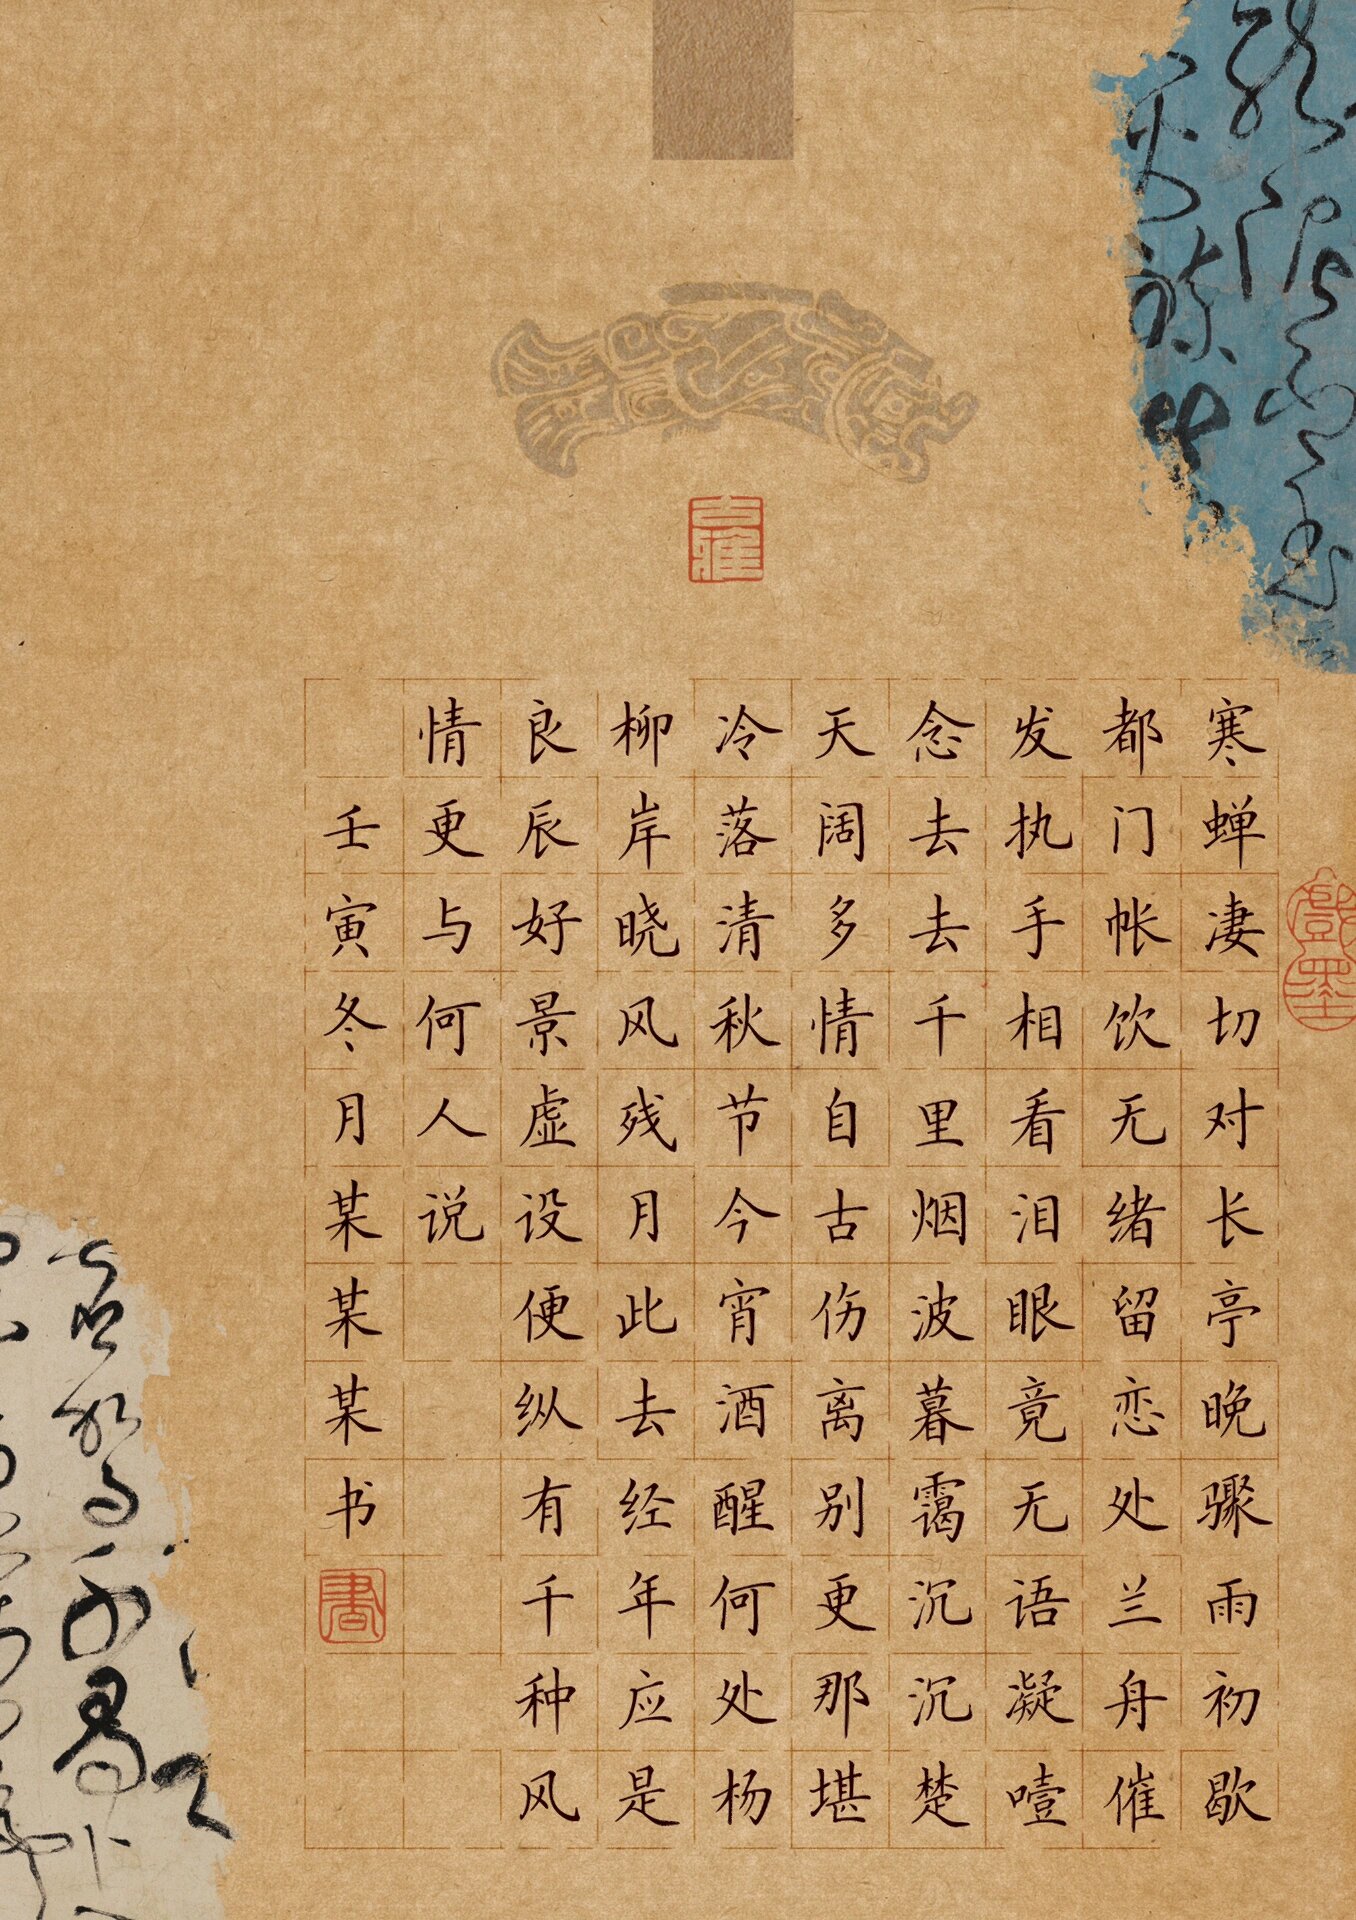 寒蝉凄切对长亭晚骤雨初歇
都门帐饮无绪留恋处兰舟催
发执手相看泪眼竟无语凝噎
念去去千里烟波暮霭沉沉楚
天阔多情自古伤离别更那堪
冷落清秋节今宵酒醒何处杨
柳岸晓风残月此去经年应是
良辰好景虚设便纵有千种风
情更与何人说
壬寅冬月某某某书
書
古雅